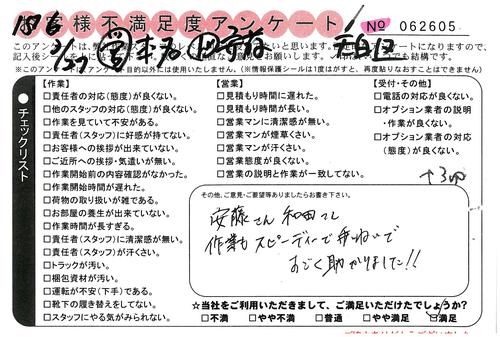 お客様不満足度アンケート
No 062605
チェックリスト
【作業】
□責任者の対応(態度)が良くない。
□他のスタッフの対応(態度)が良くない。
□作業を見ていて不安がある。
□責任者(スタッフ)に好感が持てない。
□お客様への挨拶が出来ていない。
□ご近所への挨拶・気遣いが無い。
□作業開始前の内容確認がなかった。
□作業開始時間が遅れた。
□荷物の取り扱いが雑である。
□お部屋の養生が出来ていない。
□作業時間が長すぎる。
□責任者(スタッフ)に清潔感が無い。
□責任者(スタッフ)が汗くさい。
□トラックが汚い。
□梱包資材が汚い。
□運転が不安(下手)である。
□靴下の履き替えをしてない。
□スタッフにやる気がみられない。
【営業】
□見積もり時間に遅れた。
□見積もり時間が長い。
□営業マンに清潔感が無い。
□営業マンが煙草くさい。
□営業マンが汗くさい。
□営業態度が良くない。
□営業の説明と作業が一致してない。
【受付・その他】
□電話の対応が良くない。
□オプション業者の説明
・作業が良くない。
□オプション業者の対応
(態度)が良くない。
その他、ご意見・ご要望等ありましたらお書き下さい。
安藤さん 和田さん
作業もスピーディーで手ねいで
すごく助かりました!!
☆当社をご利用いただきまして、ご満足いただけたでしょうか?
□不満 □やや不満 □普通 □やや満足 □満足